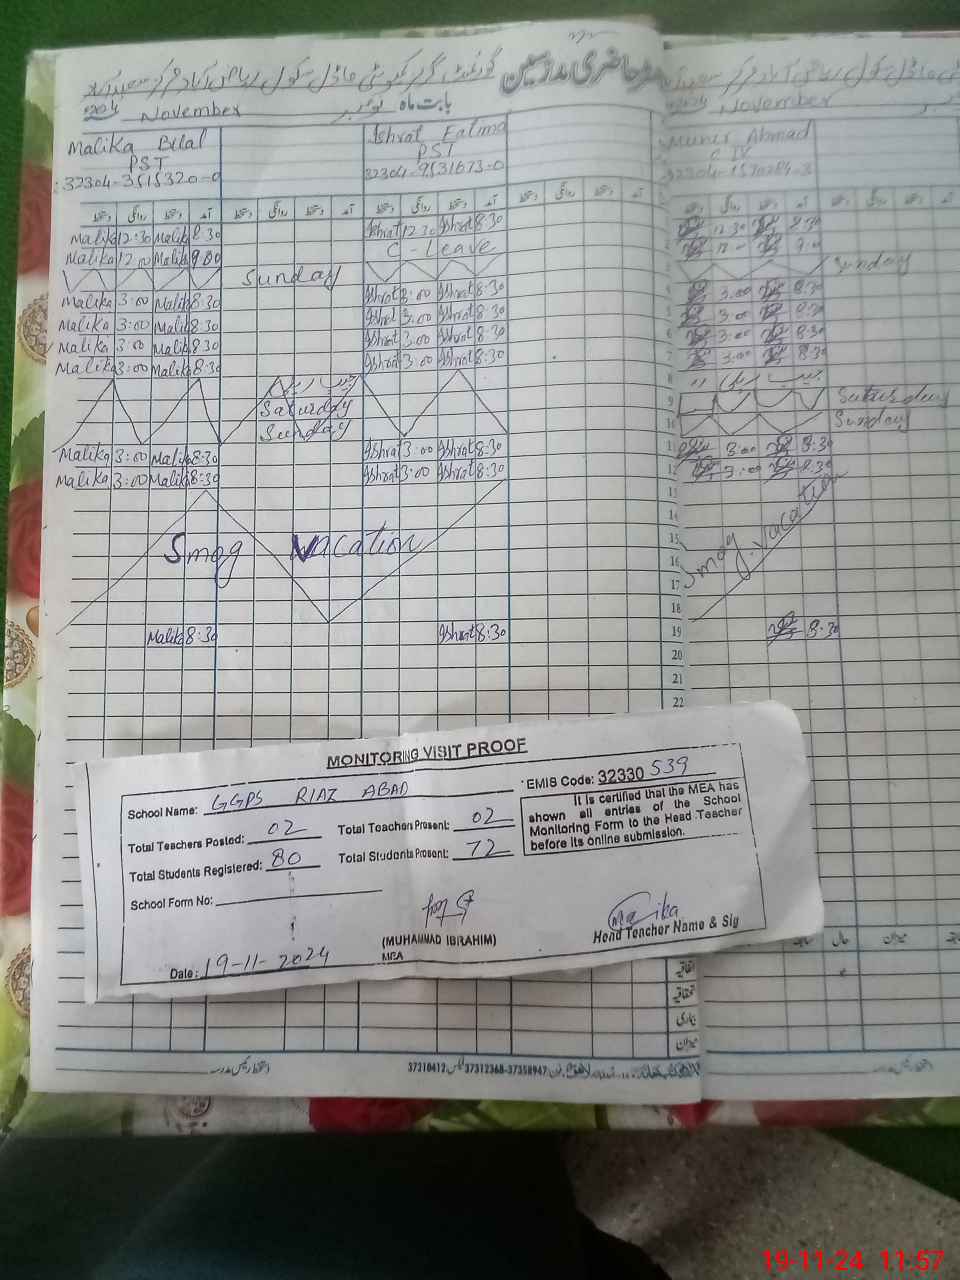 رجسٹر حاضری مدرسین
2024 November بابت ماہ نومبر
Malika Bilal
PST
32304-3515320-0
Ishrat Fatima
PST
32304-9531673-0
Munir Ahmad
C IV
دستخط روانگی دستخط آمد دستخط روانگی دستخط آمد دستخط روانگی دستخط آمد
Malika 12:30 Malika 8:30 Ishrat 12:30 Ishrat 8:30
Malika 12:00 Malika 9:00 C-Leave
Sunday
Malika 3:00 Malika 8:30 Ishrat 3:00 Ishrat 8:30
Malika 3:00 Malika 8:30 Ishrat 3:00 Ishrat 8:30
Malika 3:00 Malika 8:30 Ishrat 3:00 Ishrat 8:30
Malika 3:00 Malika 8:30 Ishrat 3:00 Ishrat 8:30
Saturday
Sunday
Malika 3:00 Malika 8:30 Ishrat 3:00 Ishrat 8:30
Malika 3:00 Malika 8:30 Ishrat 3:00 Ishrat 8:30
Smog Vacation
Malika 8:30 Ishrat 8:30
November
12:30 8:30
9:00
Sunday
3:00 8:30
3:00 8:30
3:00 8:30
7 3:00 8:30
8
9 Saturday
10 Sunday
11 3:00 8:30
12 3:00 8:30
13
14
15
16
17
18
Smog Vacation
19 8:30
20
21
22
MONITORING VISIT PROOF
School Name: GGPS RIAZ ABAD
EMIS Code: 32330 539
Total Teachers Posted: 02 Total Teachers Present: 02
Total Students Registered: 80 Total Students Present: 72
It is certified that the MEA has
shown all entries of the School
Monitoring Form to the Head Teacher
before its online submission.
School Form No:
(MUHAMMAD IBRAHIM)
MEA
Malika
Head Teacher Name & Sig
Date: 19-11-2024
میزان
37310412 37312368-37358947
19-11-24 11:57